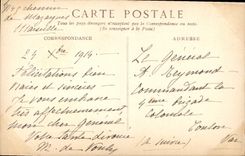 chemin
de Mazargues
Marseille
CARTE POSTALE
Tous les pays étrangers n'acceptent pas la Correspondance au recto
(Se renseigner à la Poste)
CORRESPONDANCE
ADRESSE
24 Xbre 1914
Félicitations bien
vraies et sincères
Je vous embrasse
très affectueusement
mon cher général
Votre
M. de
Le Général
A Reymond
Commandant la
4ème brigade
Coloniale
Toulon
à suivre
Var